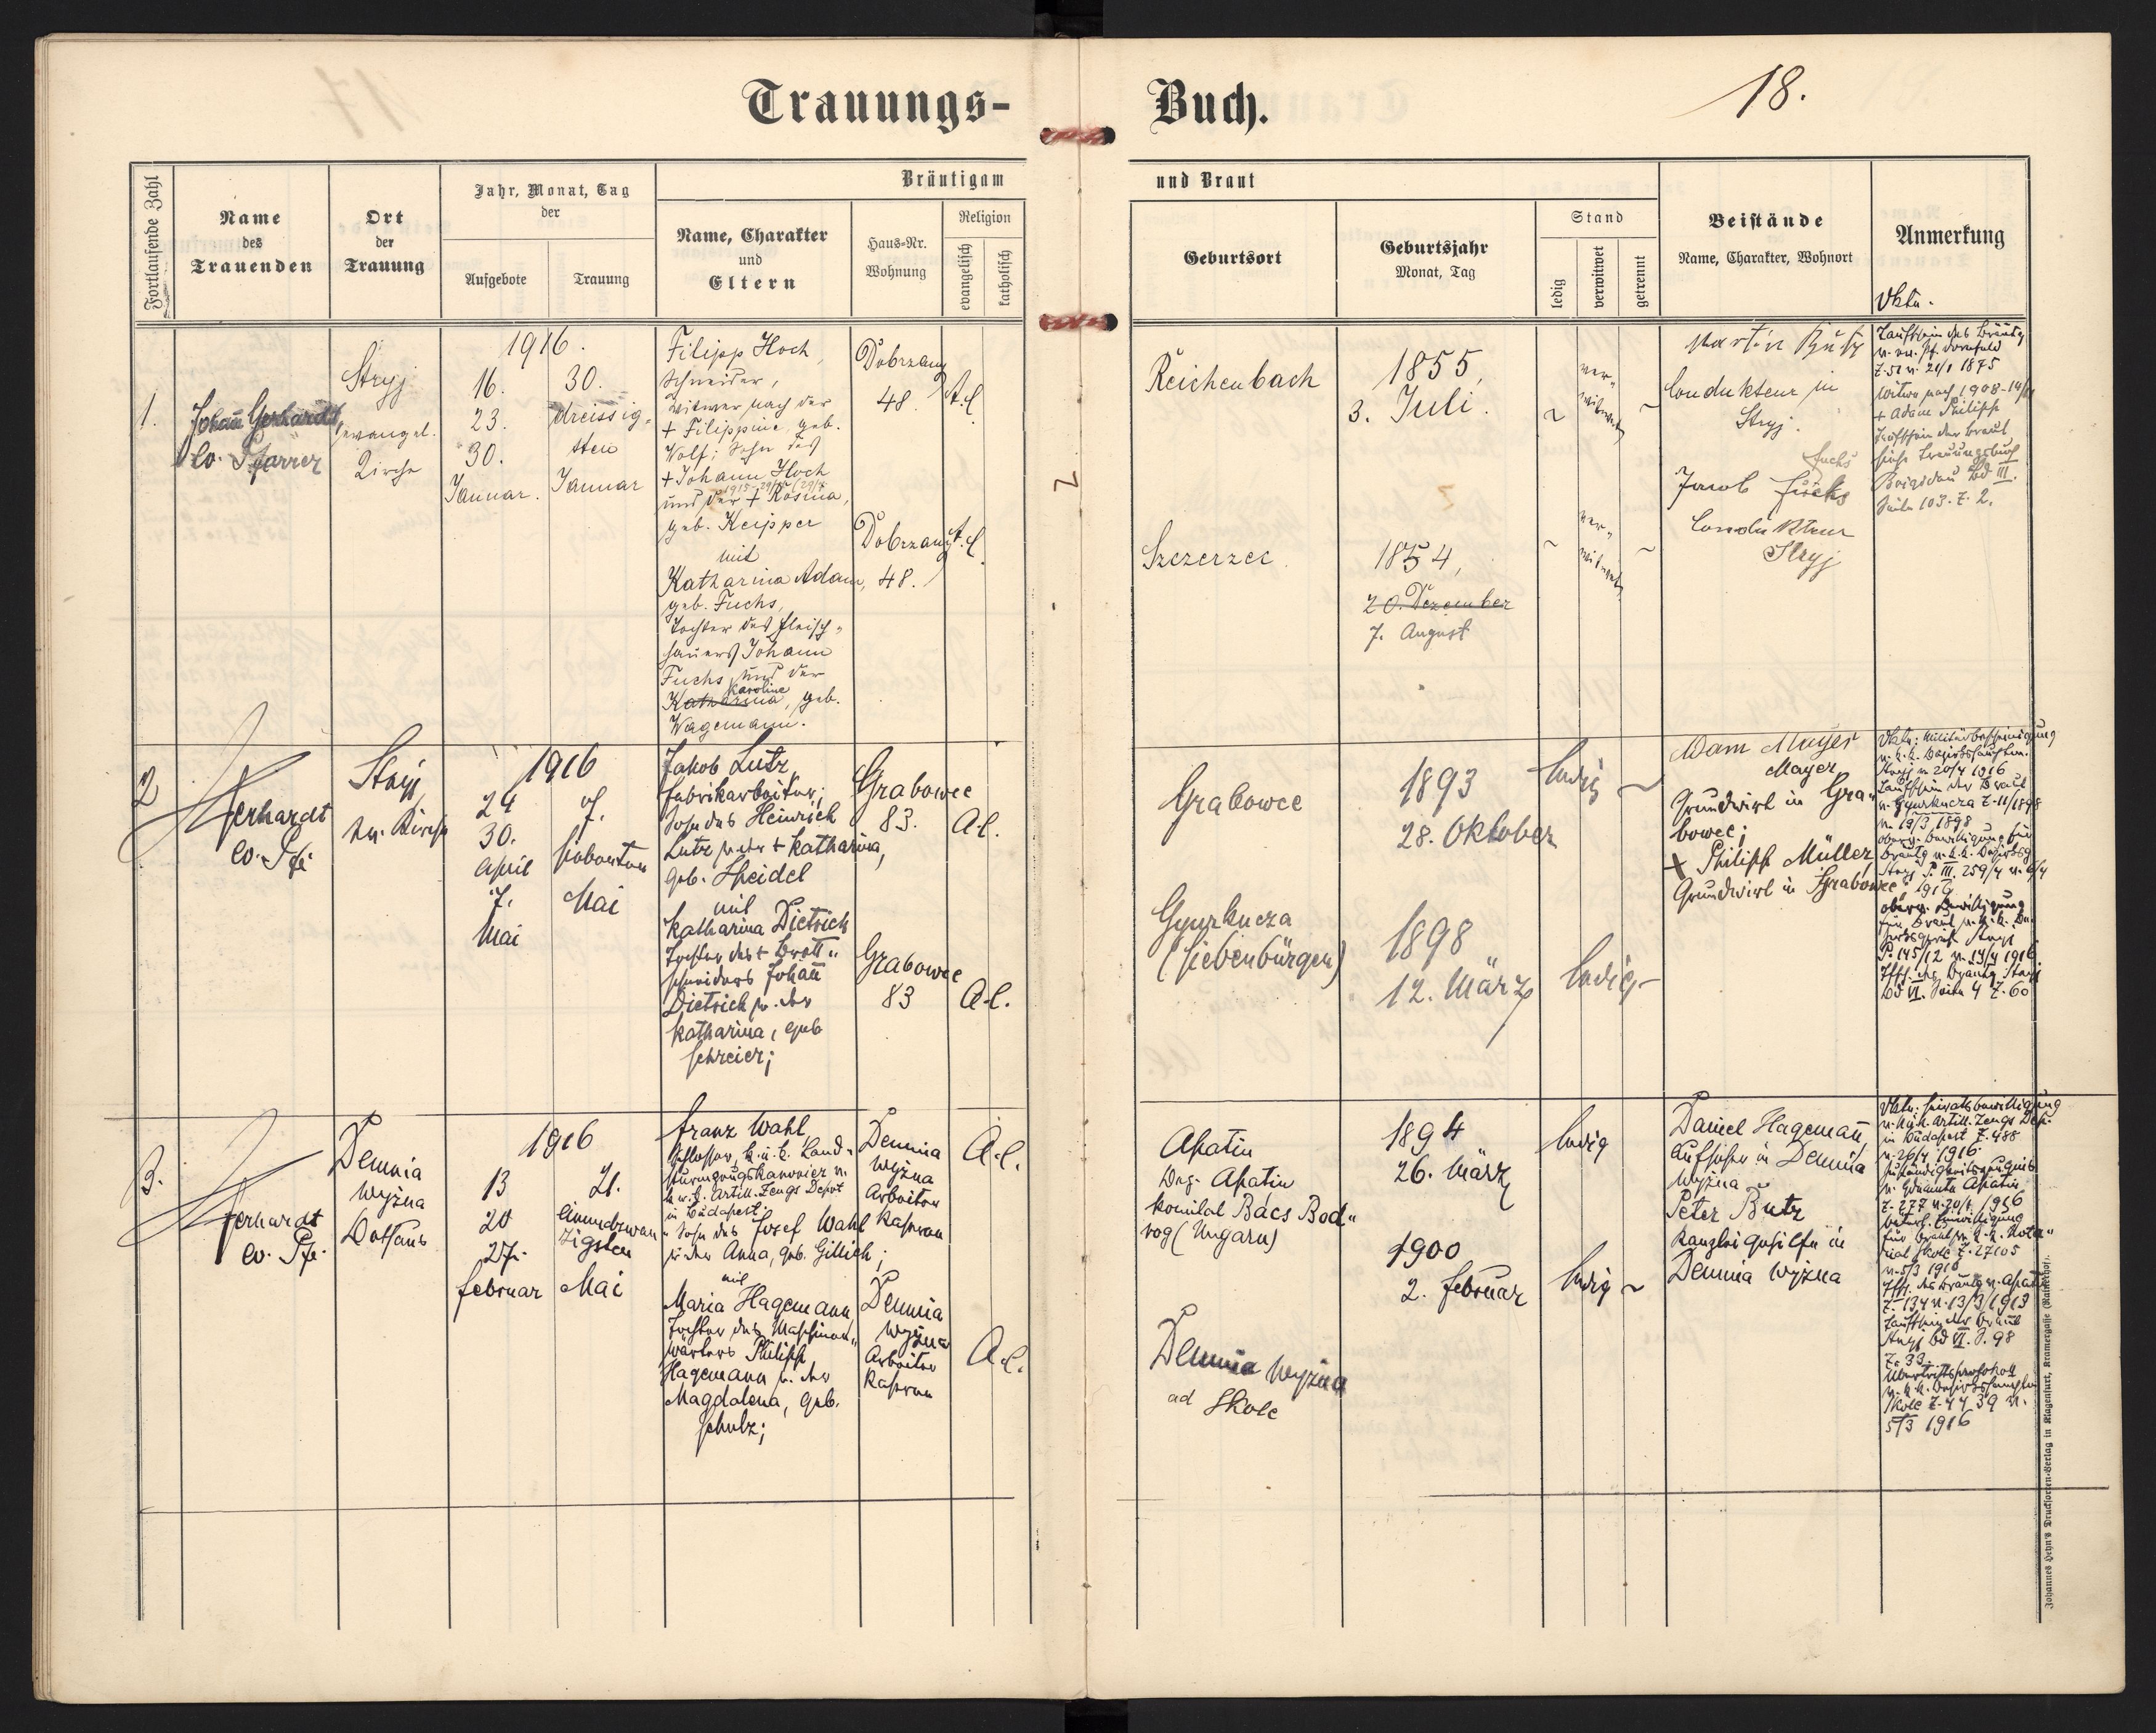 Trauungs-
Buch.
18.
Fortlaufende Zahl
Name
des
Trauenden
Ort
der
Trauung
Jahr, Monat, Tag
der
Aufgebote
Trauung
Bräutigam
Name, Charakter
und
Eltern
Haus-Nr.
Wohnung
Religion
evangelisch
katholisch
und Braut
Geburtsort
Geburtsjahr
Monat, Tag
Stand
ledig
verwitwet
getrennt
Beistände
Name, Charakter, Wohnort
Anmerkung
1.
Johann Gerhardt,
ev. Pfarrer
Stryj
evangel.
Kirche
1916.
16.
23.
30.
Januar.
30.
dreissig-
sten
Januar
Filipp Hoch,
Schneider,
Witwer nach der
+ Filippine, geb.
Wolf; Sohn des
+ Johann Hoch
und der + Rosina,
geb. Keipper
mit
Katharina Adam,
geb. Fuchs,
Tochter des Fleisch-
hauers Johann
Fuchs und der
Karoline
Katharina, geb.
Wagemann.
Dobrzany
48.
A.C.
Dobrzany
48.
A.C.
Reichenbach
1855,
3. Juli.
ver-
witwet
Szczerzec
1854,
20. Dezember
7. August
ver-
witwet
Martin
Condukteur in
Stryj.
Fuchs
Jacob Fuchs
Condukteur
Stryj
Taufschein des Bräutg
Z. 52 v. 21/1 1875
+ Adam Philipp
Taufschein der Braut
siehe Trauungsbuch
Brigidau Bd III.
Seite 103. Z. 2.
2
Gerhardt
ev. Pfr.
Stryj,
ev. Kirche
1916
24
30.
April
7.
Mai
7.
siebenten
Mai
Jakob Lutz,
Fabrikarbeiter;
Sohn des Heinrich
Lutz u. der + Katharina,
geb. Heidel
mit
Katharina Dietrich
Tochter des + Brett-
schneiders Johann
Dietrich u. der
Katharina, geb
Schreier;
Grabowce
83.
A.C.
Grabowce
83
A.C.
Grabowce
1893
28. Oktober
ledig
Gyurkucza
(Siebenbürgen)
1898
12. März
ledig
Adam Mayer
Mayer
Grundwirt in Gra-
bowce;
+ Philipp Müller,
Grundwirt in Grabowce
Stryj v. 20/4 1916
Taufschein der Braut
v. Gyurkucza Z. 11/1898
v. 19/3 1898
oberv. Bewilligung für
Bräutg v. k.k. Bezirksg.
Stryj P. III. 259/4 v. 6/4
1916.
oberv. Bewilligung
für Braut v. k.k. Be-
zirksgericht Stryj
P. 145/12 v. 14/4 1916
Tfsch. des Bräutg Stryj
Bd VI. Seite 4 Z. 60
3.
Gerhardt
ev. Pfr.
Demnia
Wyżna
Bethaus
1916
13
20
27.
Februar
21.
einundzwan
zigsten
Mai
Franz Wahl,
Schlosser, k.u.k. Land-
sturmzugskanonier v.
k.u.k. Artill. Zeugs Depot
in Budapest.
Sohn des Josef Wahl
u. der Anna, geb. Gillich;
mit
Maria Hagemann,
Tochter des Maschinen-
wärters Philipp
Hagemann u. der
Magdalena, geb.
Schulz;
Demnia
Wyżna
Arbeiter
Kasernen
A.C.
Demnia
Wyżna
Arbeiter
Kasernen
A.C.
Apatin
Bez. Apatin
Komitat Bács Bod-
rog (Ungarn)
1894
26. März
ledig
1900
2. Februar
ledig
Demnia Wyżna
ad Skole
Daniel Hagemann,
Aufseher in Demnia
Wyżna
Peter Butz
Kanzleigehilfe in
Demnia Wyżna
v. k.u.k. Artill. Zeugs Dep.
in Budapest Z. 488
v. 26/4 1916.
Zuständigkeitszeugnis
v. Gemeinde Apatin
väterl. Einwilligung
Skole Z. 27105
v. 5/3 1916
Tfsch. des Bräutg v. Apatin
Z. 134 v. 13/3/1913
Taufschein der Braut
Stryj Bd VI. S. 98
Z. 33.
Übertrittsprotokoll
Skole Z. 4439 v.
5/3 1916
Johannes Heyn's Drucksorten-Verlag in Klagenfurt, Kramergasse (Rauterhof).